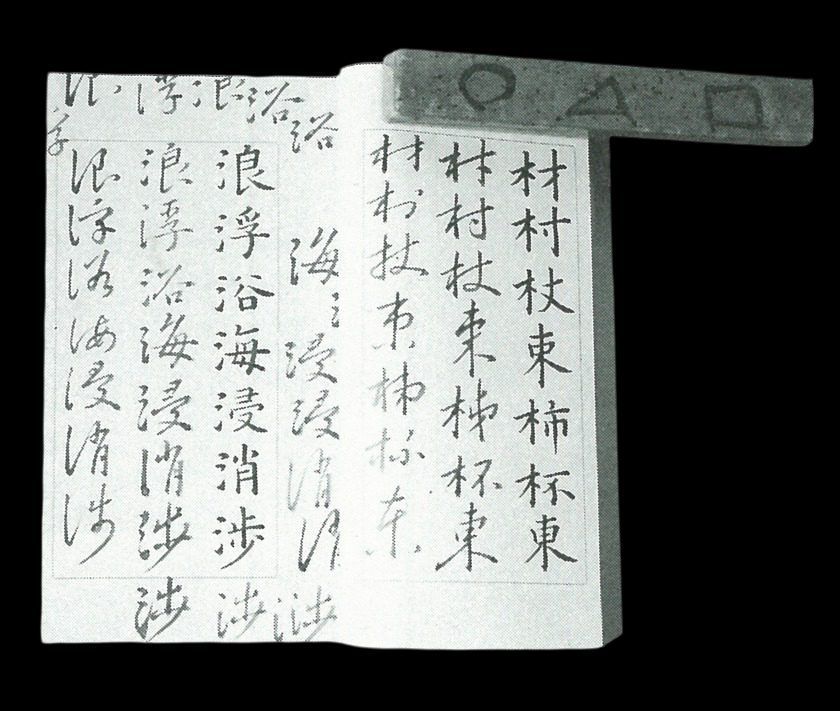 ○△□
材村杖束柿杯東
材村杖束柿杯東
材村杖束柿杯東
浴浴
海氵浸浸消氵渉
浪
浪浮浴海浸消渉渉
浮
浪浮浴海浸消渉渉
浪
浪浮浴海浸消渉